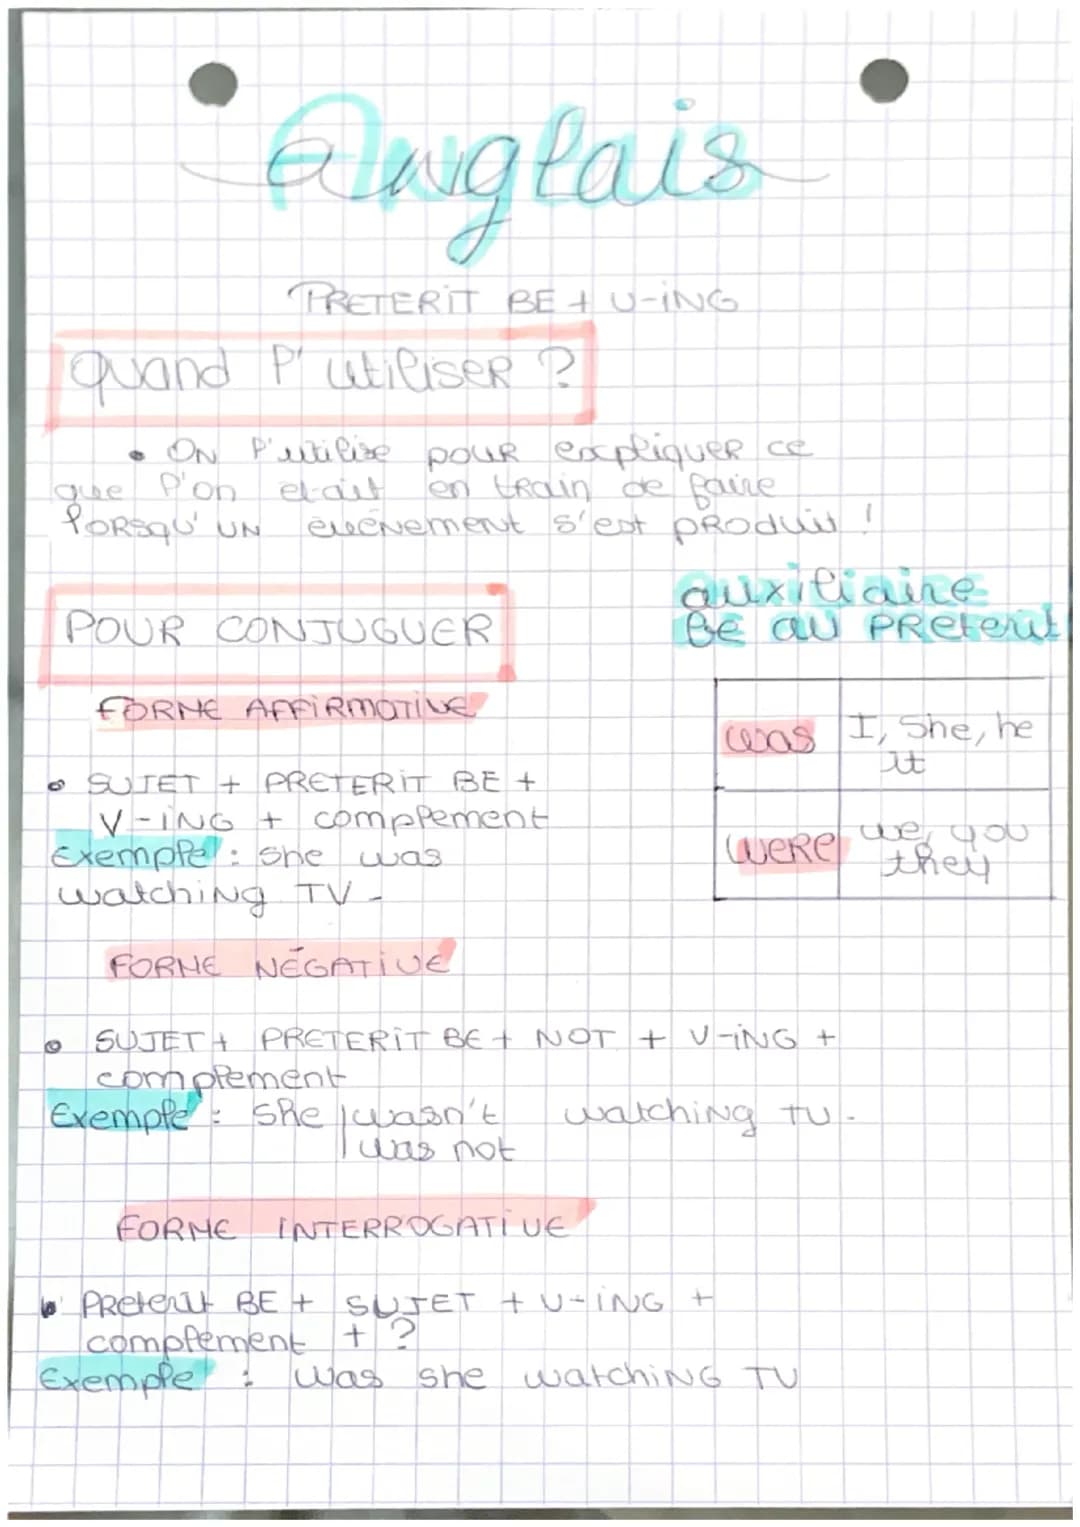 Anglais
PRETERIT BE + V-ING
Quand l'utiliser ?
• ON l'utilise pour expliquer ce
que l'on était en train de faire
lorsqu'un évènement s'est produit !
POUR CONJUGUER
auxiliaire
BE au Preterit
FORME AFFIRMATIVE
was I, She, he
it
• SUJET + PRETERIT BE +
V-ING + complement
were we, you
they
Exemple : she was
watching TV -
FORME NÉGATIVE
• SUJET + PRETERIT BE + NOT + V-ING +
complement
Exemple : she wasn't watching TV.
was not
FORME INTERROGATIVE
• Preterit BE + SUJET + V-ING +
complement + ?
Exemple : Was she watching TV